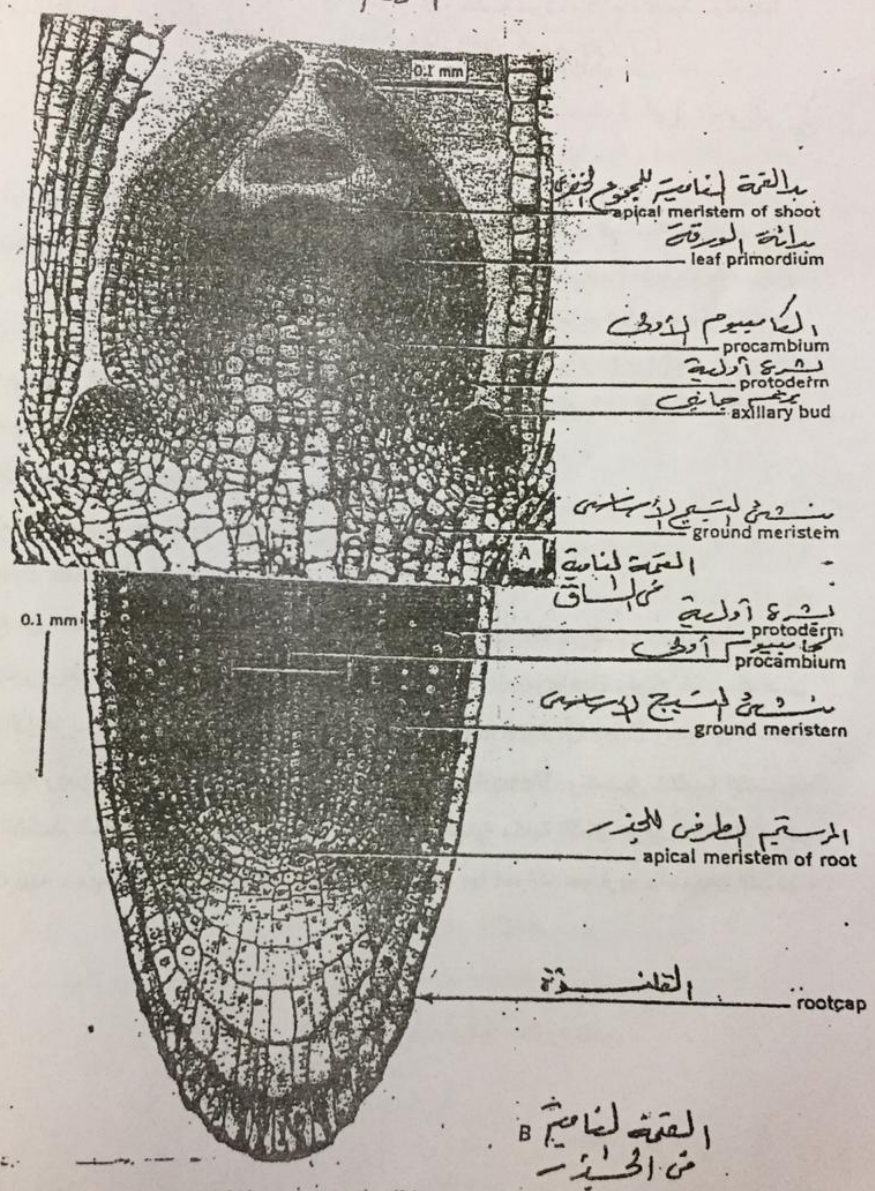 0.1 mm
القمة النامية للمجموع الخضرى
apical meristem of shoot
الورقة
leaf primordium
الكامبيوم الأولى
procambium
بشرة أولية
protoderm
برعم جانبى
axillary bud
منشئ النسيج الأساسى
ground meristem
A
القمة النامية
فى الساق
0.1 mm
بشرة أولية
protoderm
كامبيوم أولى
procambium
منشئ النسيج الأساسى
ground meristem
المرستيم الطرفى للجذر
apical meristem of root
القلنسوة
rootcap
B القمة النامية
فى الجذر